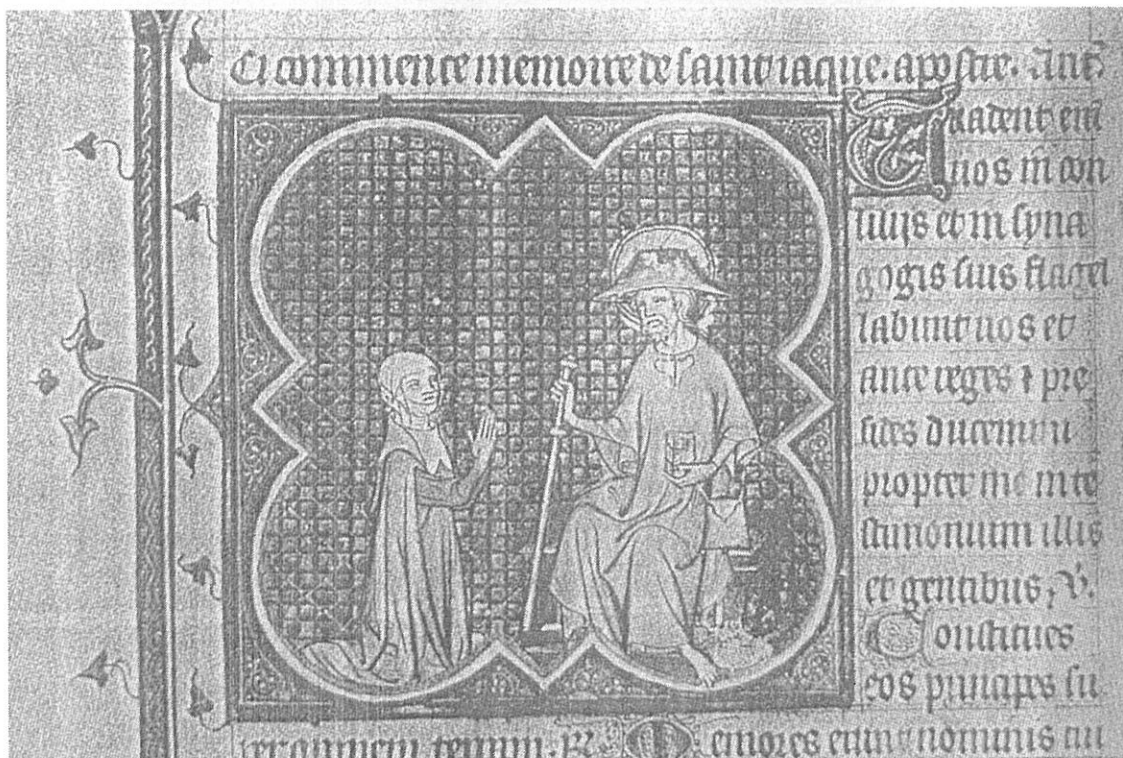 Ci commence memoire de saint iaque. apostre. Ant.
Tradent eni
uos in con
siliis et in syna
gogis suis flagel
labunt uos et
ante reges & pre
sides ducemini
propter me in te
stimonium illis
et gentibus, V.
Constitues
eos principes su
per omnem terram. R. Memores erunt nominis tui